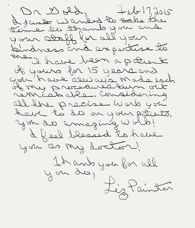 Dr Gold, Feb 17, 2015
I just wanted to take the
time to thank you and
your staff for all your
kindness and expertise to
me.
I have been a patient
of yours for 15 years and
you have always made each
of my procedures turn out
remarkable. Considering
all the precise work you
have to do on your patients,
you do amazing work!
I feel blessed to have
you as my doctor!
Thank you for all
you do,
Liz Painter